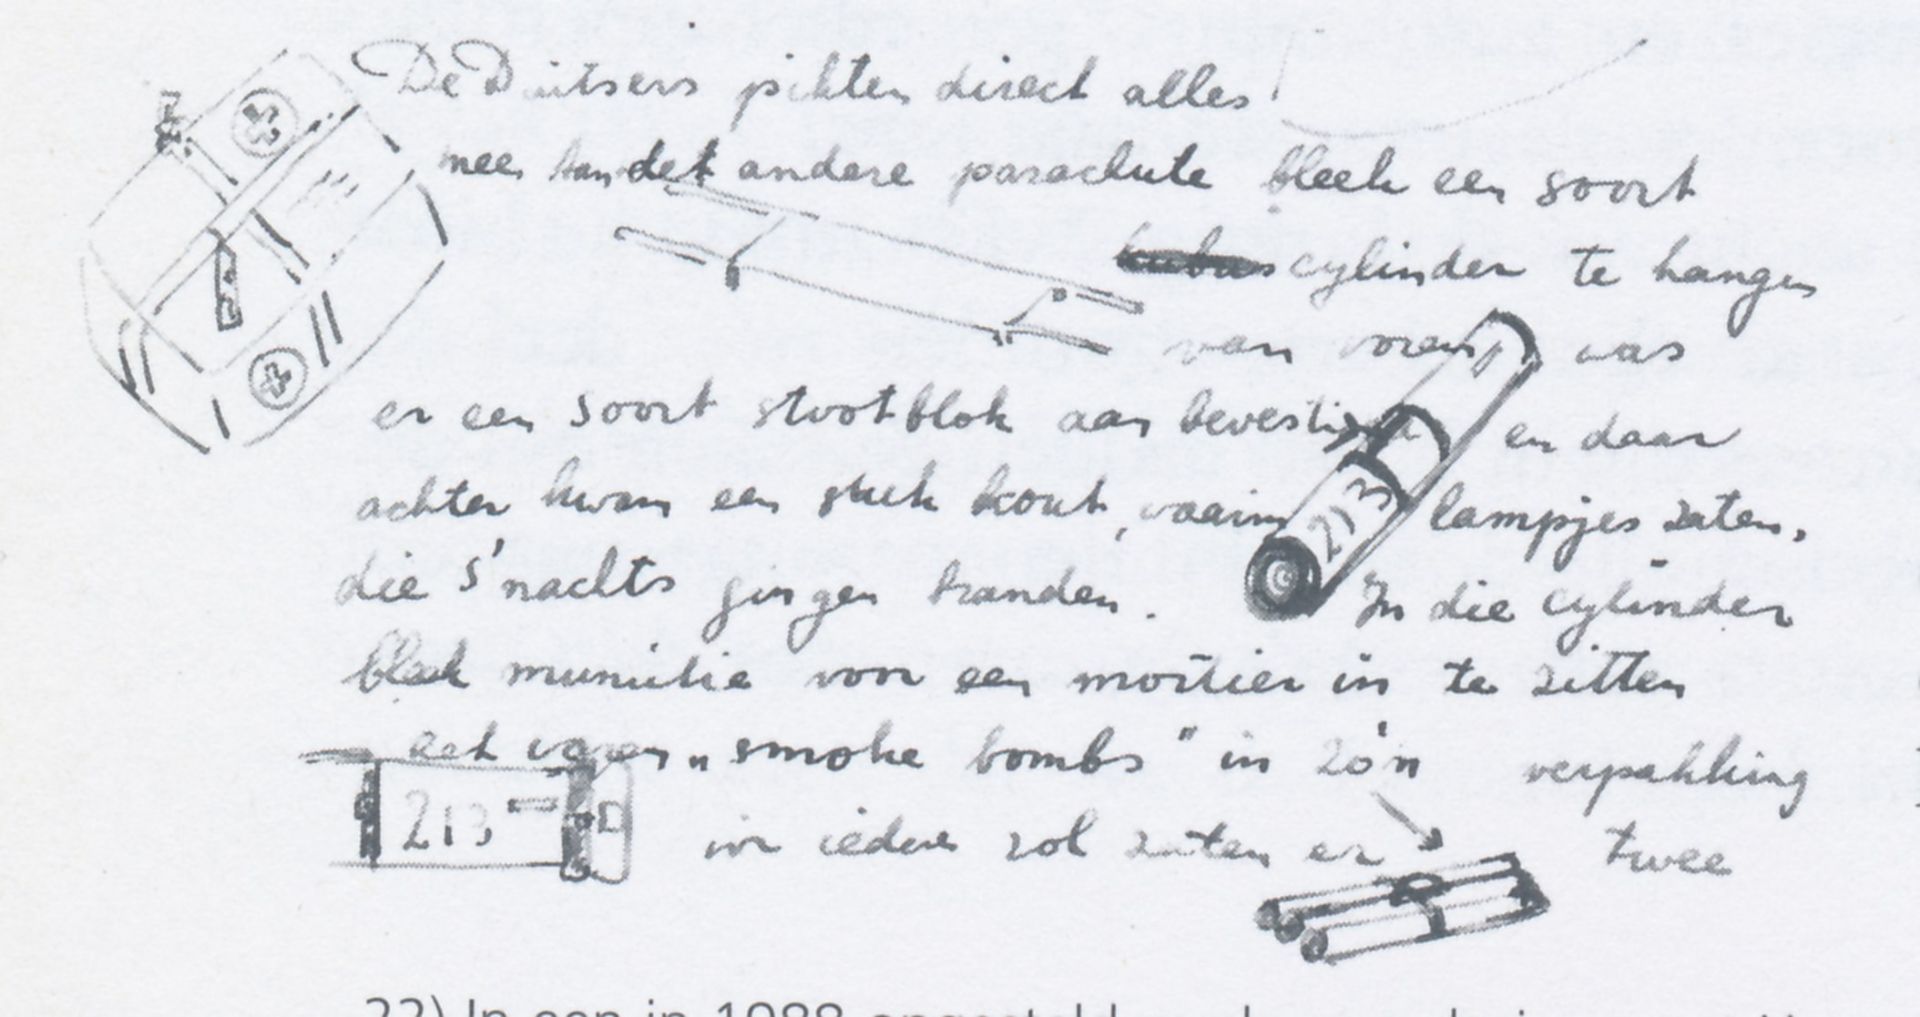 De Duitsers pikten direct alles
mee. Aan det andere parachute bleek een soort
kubus cylinder te hangen
van voren was
er een soort stootblok aan bevestigd en daar
achter kwam een stuk hout, waarin lampjes zaten,
die s'nachts gingen branden. In die cylinder
bleek munitie voor een mortier in te zitten
het waren „smoke bombs" in zo'n verpakking
in iedere rol zaten er twee
213
213